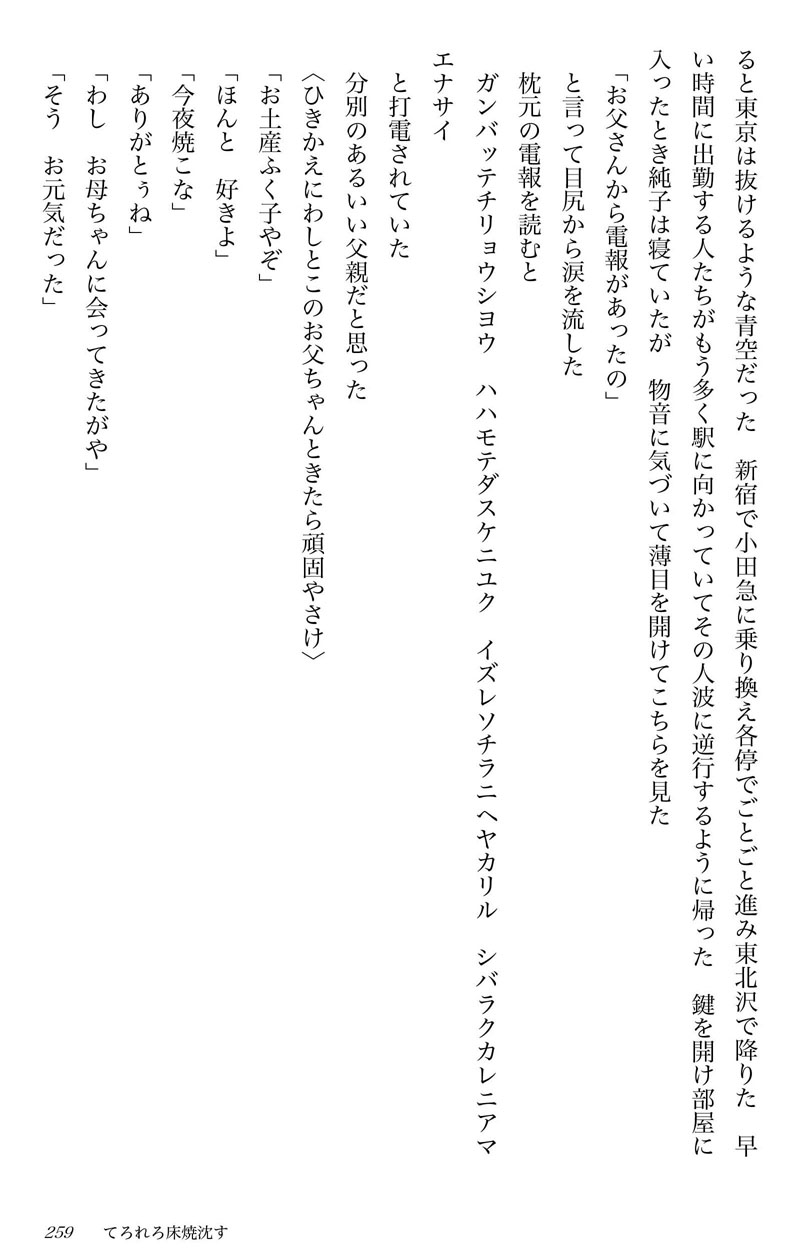 ると東京は抜けるような青空だった　新宿で小田急に乗り換え各停でごとごと進み東北沢で降りた　早
い時間に出勤する人たちがもう多く駅に向かっていてその人波に逆行するように帰った　鍵を開け部屋に
入ったとき純子は寝ていたが　物音に気づいて薄目を開けてこちらを見た
「お父さんから電報があったの」
と言って目尻から涙を流した
枕元の電報を読むと
ガンバッテチリョウシヨウ　ハハモテダスケニユク　イズレソチラニヘヤカリル　シバラクカレニアマ
エナサイ
と打電されていた
分別のあるいい父親だと思った
〈ひきかえにわしとこのお父ちゃんときたら頑固やさけ〉
「お土産ふく子やぞ」
「ほんと　好きよ」
「今夜焼こな」
「ありがとぅね」
「わし　お母ちゃんに会ってきたがや」
「そう　お元気だった」
259　てろれろ床焼沈す